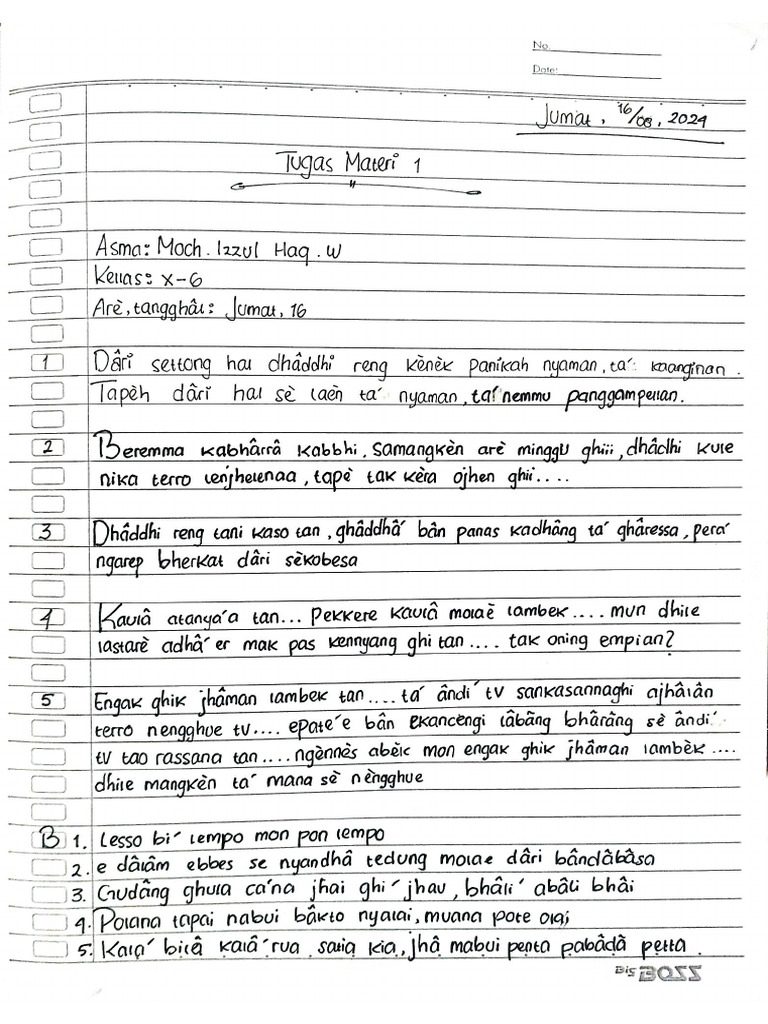 No.
Date:
Jumat, 16/08, 2024
Tugas Materi 1
Asma: Moch. Izzul Haq. W
Kellas: X-6
Arè, tangghâl: Jumat, 16
1 Dâri settong hal dhâddhi reng kènèk panikah nyaman, ta' kaanginan.
Tapèh dâri hal sè laèn ta' nyaman, ta' nemmu panggampellan.
2 Beremma kabhârrâ kabbhi, samangkèn arè minggu ghiii, dhâdhi kule
nika terro lenjhelenaa, tapè tak kèra ojhen ghii....
3 Dhâddhi reng tani kaso tan, ghâddhâ' bân panas kadhâng ta' ghâressa, pera'
ngarep bherkat dâri sèkobesa
4 Kaulâ atanya'a tan... Pekkere kaulâ molaè lambek.... mun dhile
lastarè adhâ'er mak pas kennyang ghi tan.... tak oning empian?
5 Engak ghik jhâman lambek tan.... ta' ândi' tv sankasannaghi ajhâlân
terro nengghue tv.... epate'e bân ekancengi lâbâng bhârâng sè ândi'
tv tao rassana tan.... ngènnès abèlc mon engak ghik jhâman lambèk....
dhile mangkèn ta' mana sè nèngghue
B 1. Lesso bi' lempo mon pon lempo
2. e dâlâm ebbes se nyandhâ tedung molae dâri bândâbâsa
3. Gudâng ghula ca'na jhai ghi' jhau, bhâli' abâli bhâi
4. Polana tapai nabui bâkto nyalai, muana pote olai
5. Kala' bilâ kalâ' rua, satia kia, jhâ mabui penta pabâdâ petta.
Big BOSS